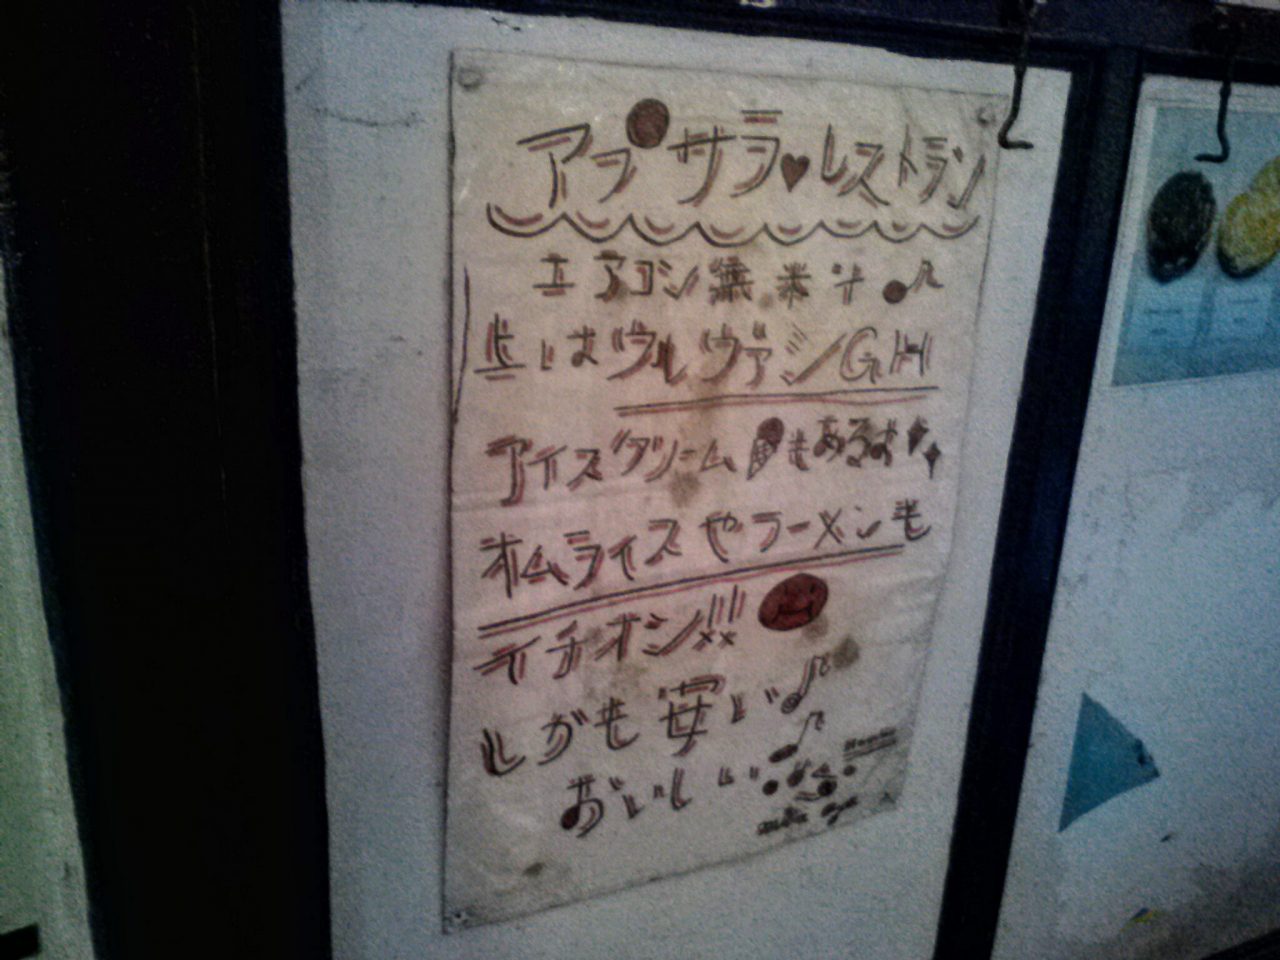 アプサラ♥レストラン
エアコン無料♪
上はウルヴァシGH
アイスクリームもあるよ
オムライスやラーメンも
イチオシ!!
しかも安い♪
おいしい♪